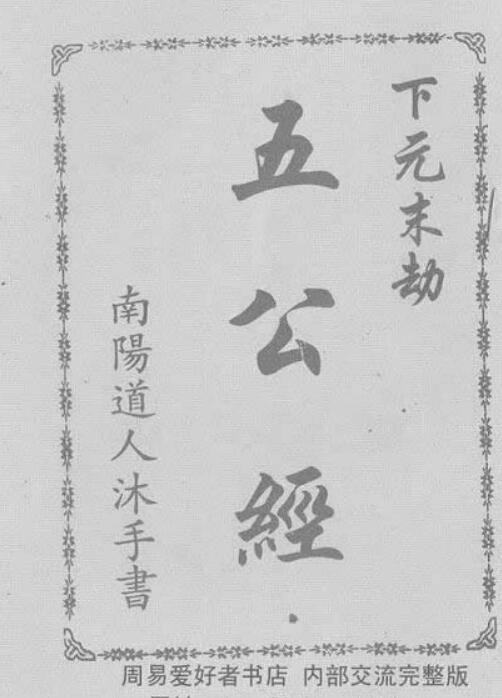 下元末劫
五公經
南陽道人沐手書
周易爱好者书店 内部交流完整版